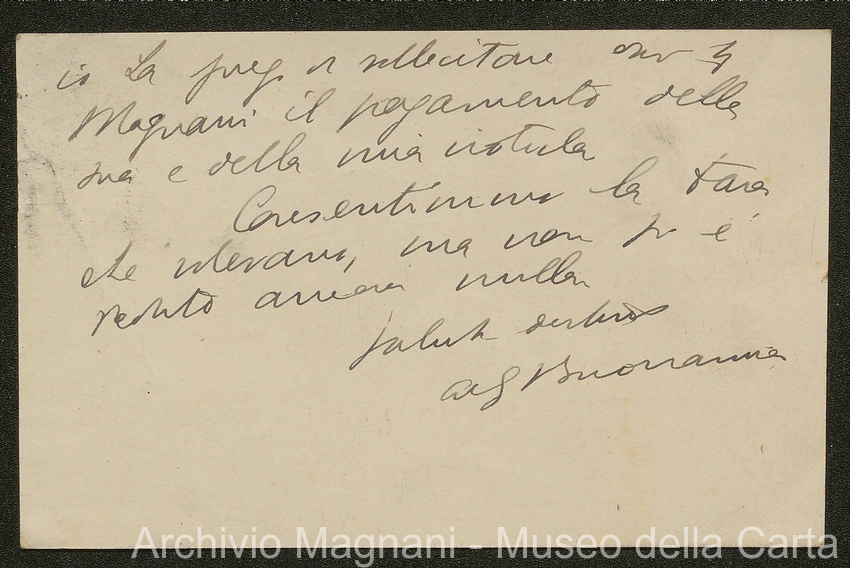 io La prego di sollecitare
Magnani il pagamento della
sua e della mia notula
Consentimmo la tara
che volevano, ma non si è
veduto ancora nulla
Saluti distinti
Buonanno
Archivio Magnani - Museo della Carta